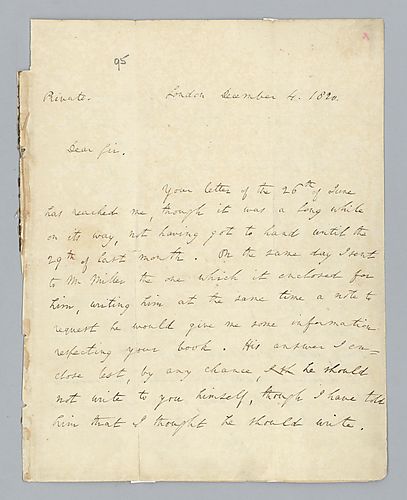 95
Private.
London December 4. 1820.
Dear Sir.
Your letter of the 26th of June
has reached me, though it was a long while
on its way, not having got to hand until the
29th of last month. On the same day I sent
to Mr Miller the one which it enclosed for
him, writing him at the same time a note to
request he would give me some information
respecting your book. His answer I en=
close lest, by any chance, he should
not write to you himself, though I have told
him that I thought he should write.